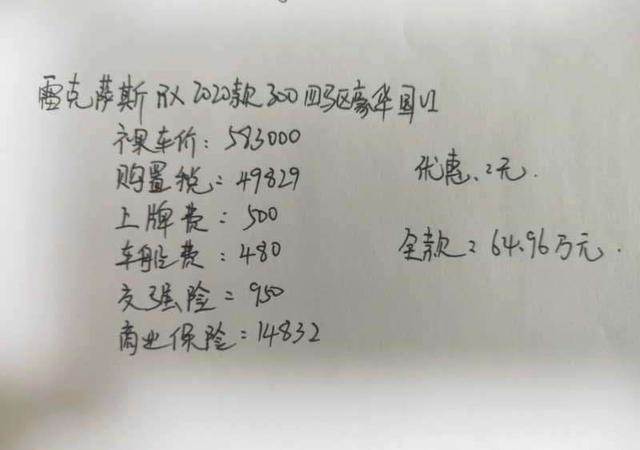 雷克萨斯 RX 2020款 300 四驱豪华国VI
裸车价：583000
购置税：49829
上牌费：500
车船费：480
交强险：950
商业保险：14832
优惠：2元.
全款：64.96万元.